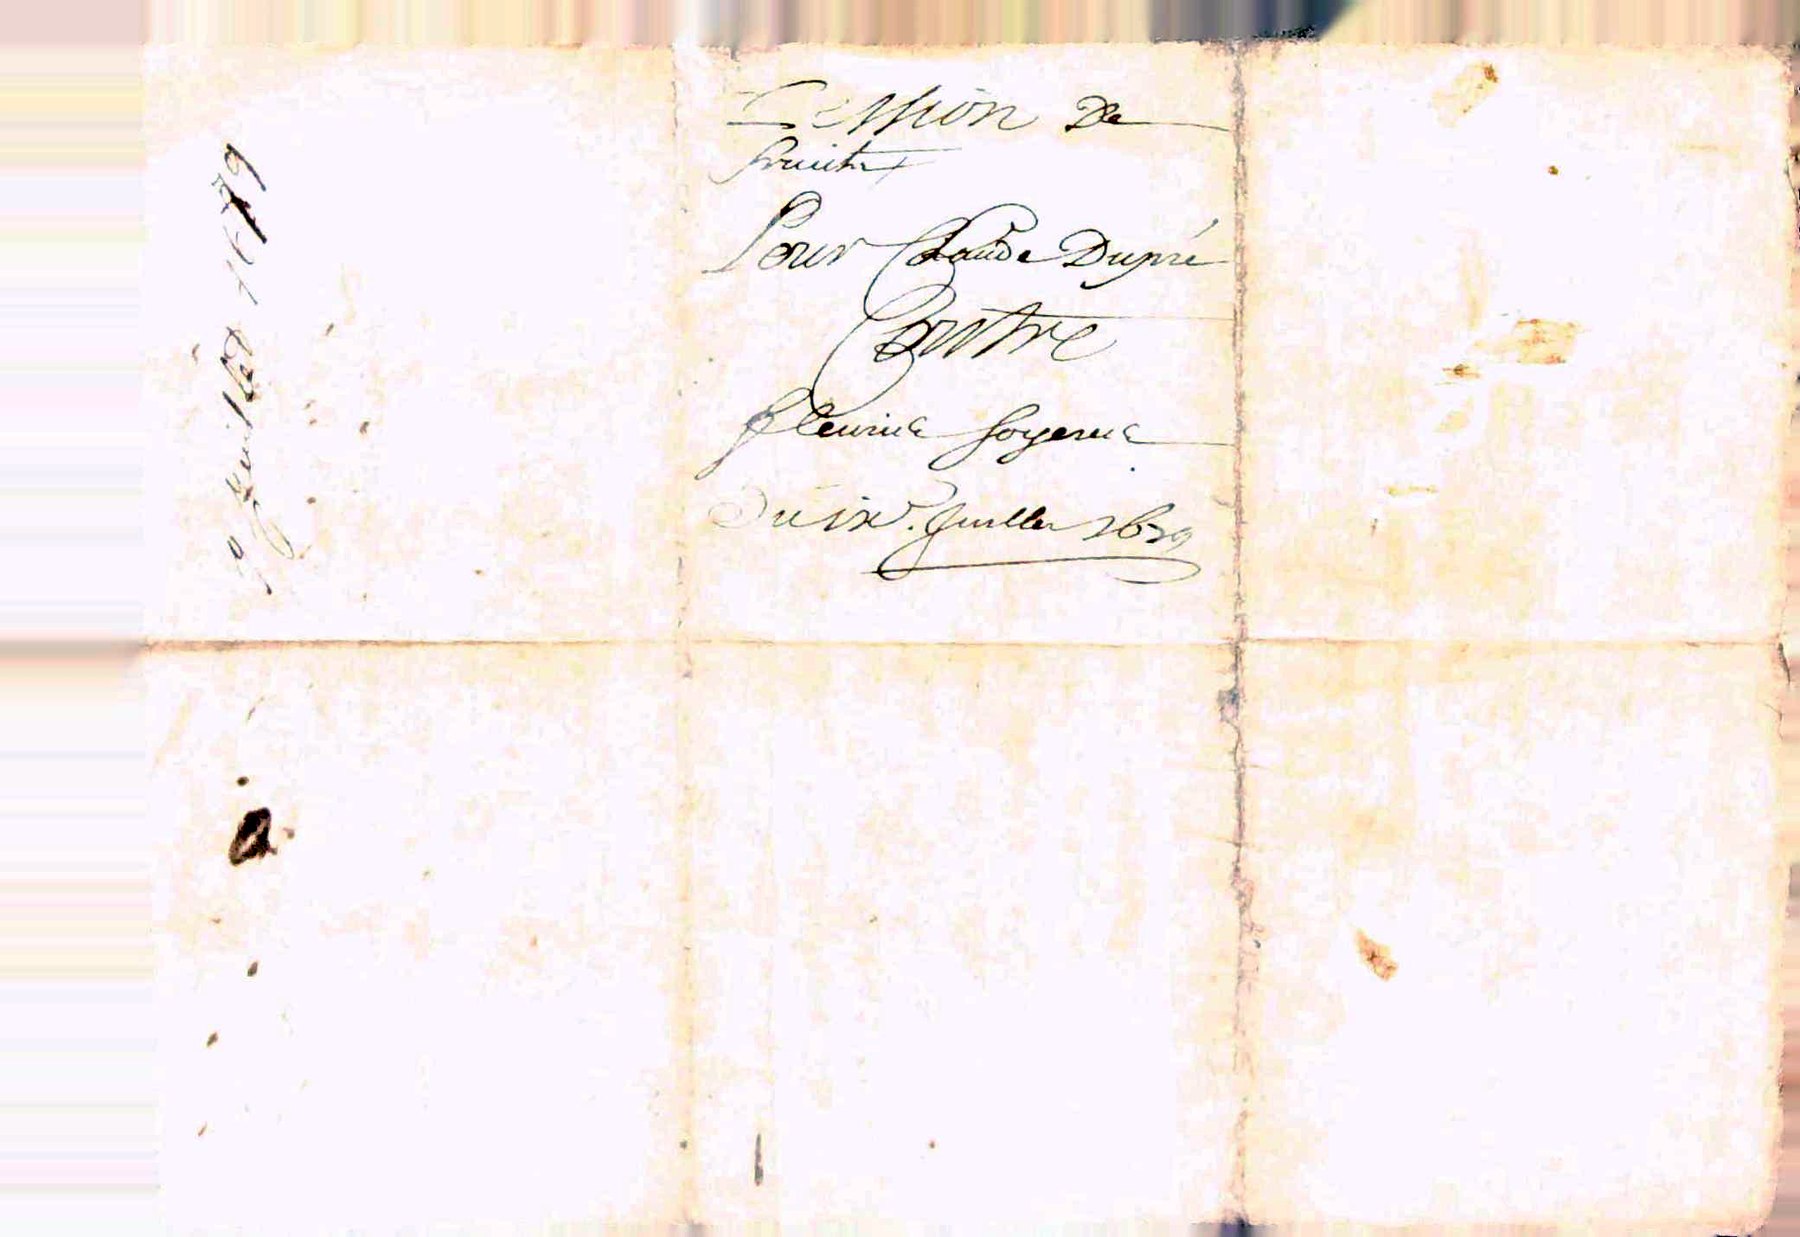 Cession de
fruits
Pour Claude Dupré
Contre
fleurie
Du ix. Juillet 1679
9 Juillet 1679